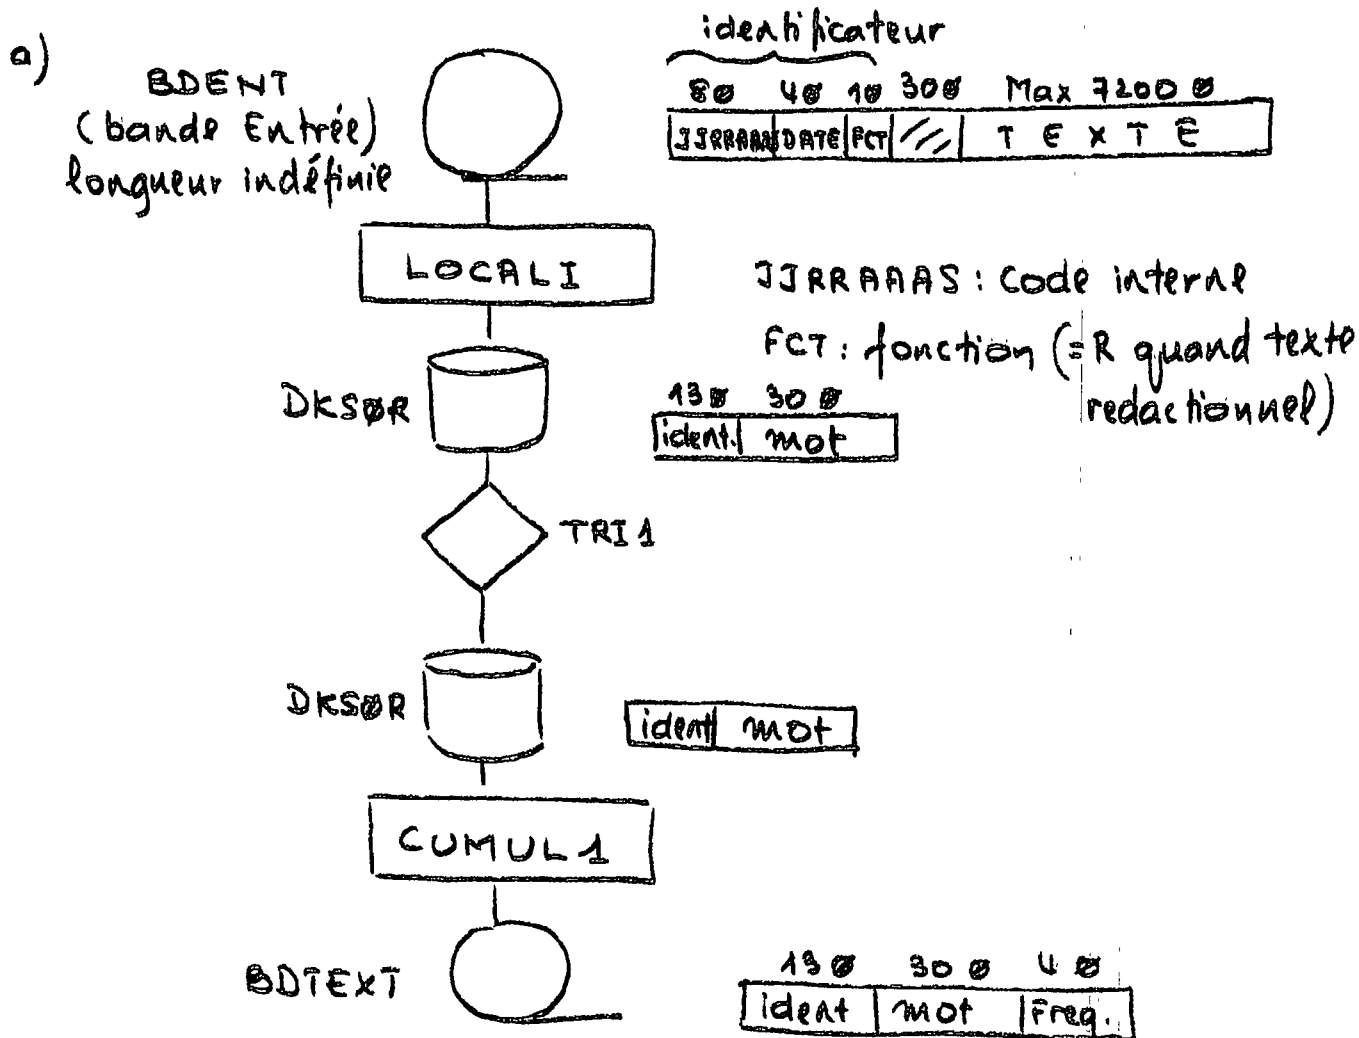 a)
identificateur
BDENT
(bande Entrée)
longueur indéfinie
8ø 4ø 1ø 30ø Max 7200 ø
JJRRAAAS DATE FCT TEXTE
LOCALI
JJRRAAAS : Code interne
FCT : fonction (=R quand texte
redactionnel)
DKSØR
13ø 30 ø
ident. mot
TRI1
DKSØR
ident mot
CUMUL1
BDTEXT
13 ø 30 ø 4 ø
ident mot Freq.